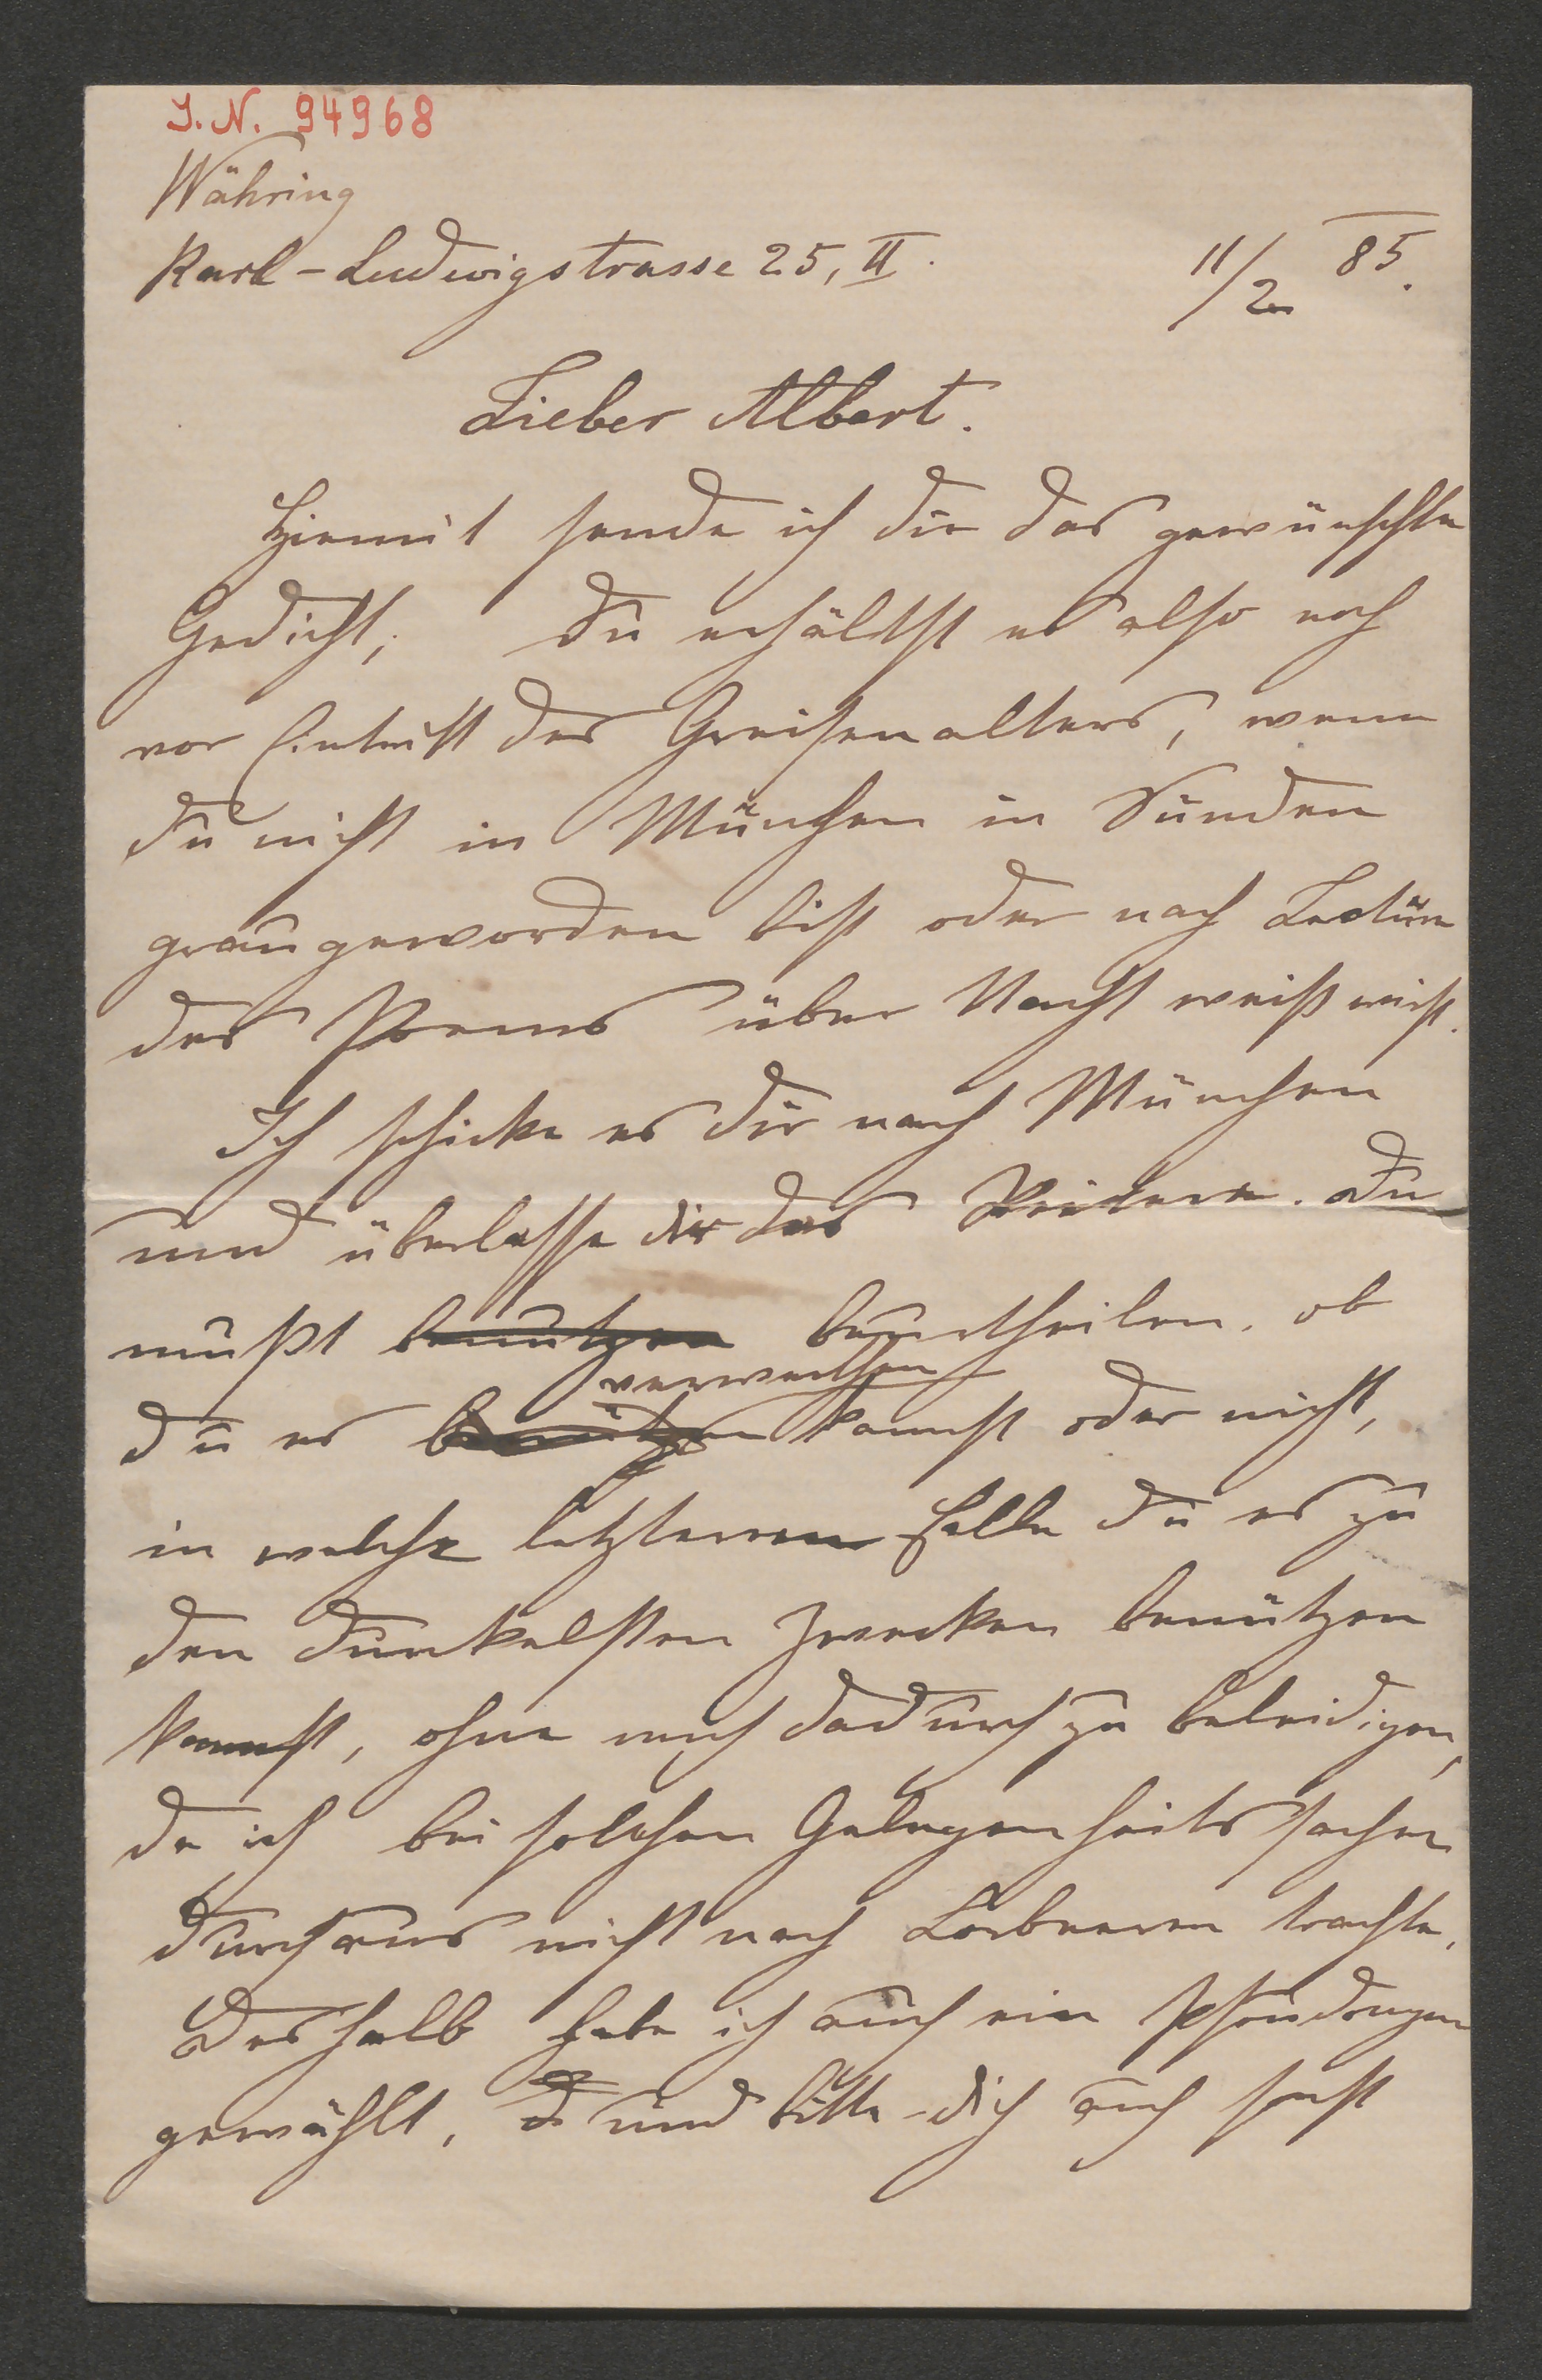 I. N. 94968
Währing
Karl-Ludwigstrasse 25, II.
11/2 85.
Lieber Albert.
Hiemit sende ich dir das gewünschte
Gedicht; du erhältst es also noch
vor Eintritt des Greisenalters, wenn
du nicht in München in Sünden
grau geworden bist oder nach Lectüre
des Poems über Nacht weiß wirst.
Ich schicke es dir nach München
und überlasse dir das Weitere. Du
mußt benutzen beurtheilen, ob
verwerthen
du es benützen kannst oder nicht,
in welche letzterem Falle du es zu
den dunkelsten Zwecken benützen
kannst, ohne mich dadurch zu beleidigen,
da ich bei solchen Gelegenheitssachen
durchaus nicht nach Lorbeeren trachte.
Deshalb habe ich auch ein Pseudonym
gewählt, d und bitte dich auch sonst